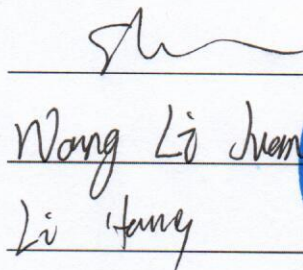 Wang Li Juan
Li Hang